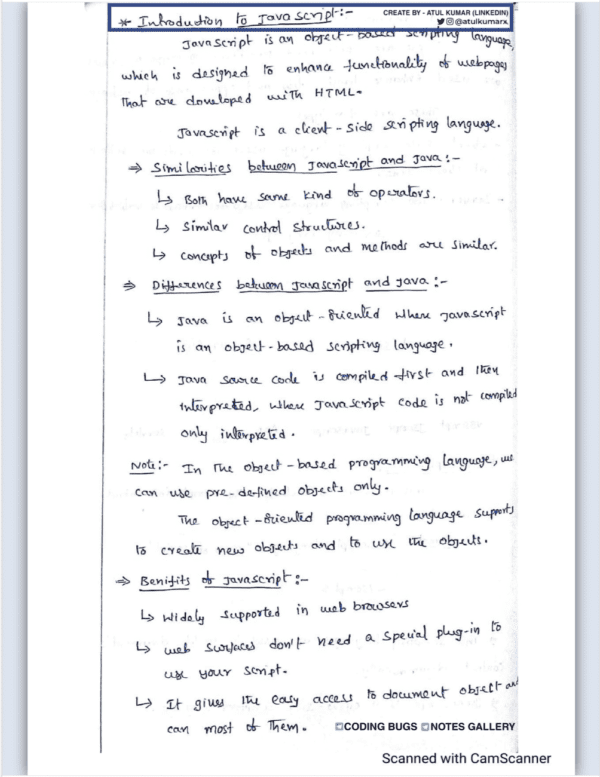 * Introduction to Javascript:-
CREATE BY - ATUL KUMAR (LINKEDIN)
@atulkumarx
Javascript is an object-based scripting language,
which is designed to enhance functionality of webpages
That are developed with HTML.
Javascript is a client-side scripting language.
⇒ Similarities between Javascript and Java:-
↳ Both have same kind of operators.
↳ Similar control structures.
↳ concepts of objects and methods are similar.
⇒ Differences between Javascript and Java:-
↳ Java is an object-oriented where Javascript
is an object-based scripting language.
↳ Java source code is compiled first and then
interpreted, where Javascript code is not compiled
only interpreted.
Note:- In the object-based programming language, we
can use pre-defined objects only.
The object-oriented programming language supports
to create new objects and to use the objects.
⇒ Benifits of Javascript:-
↳ Widely supported in web browsers
↳ web surfaces don't need a special plug-in to
use your script.
↳ It gives the easy access to document object and
can most of them.
CODING BUGS NOTES GALLERY
Scanned with CamScanner